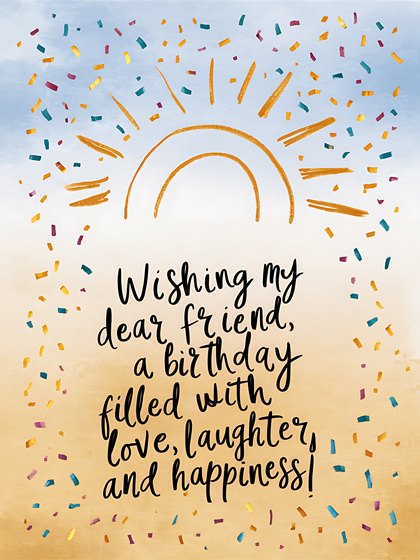 Wishing my
dear friend,
a birthday
filled with
love, laughter,
and happiness!